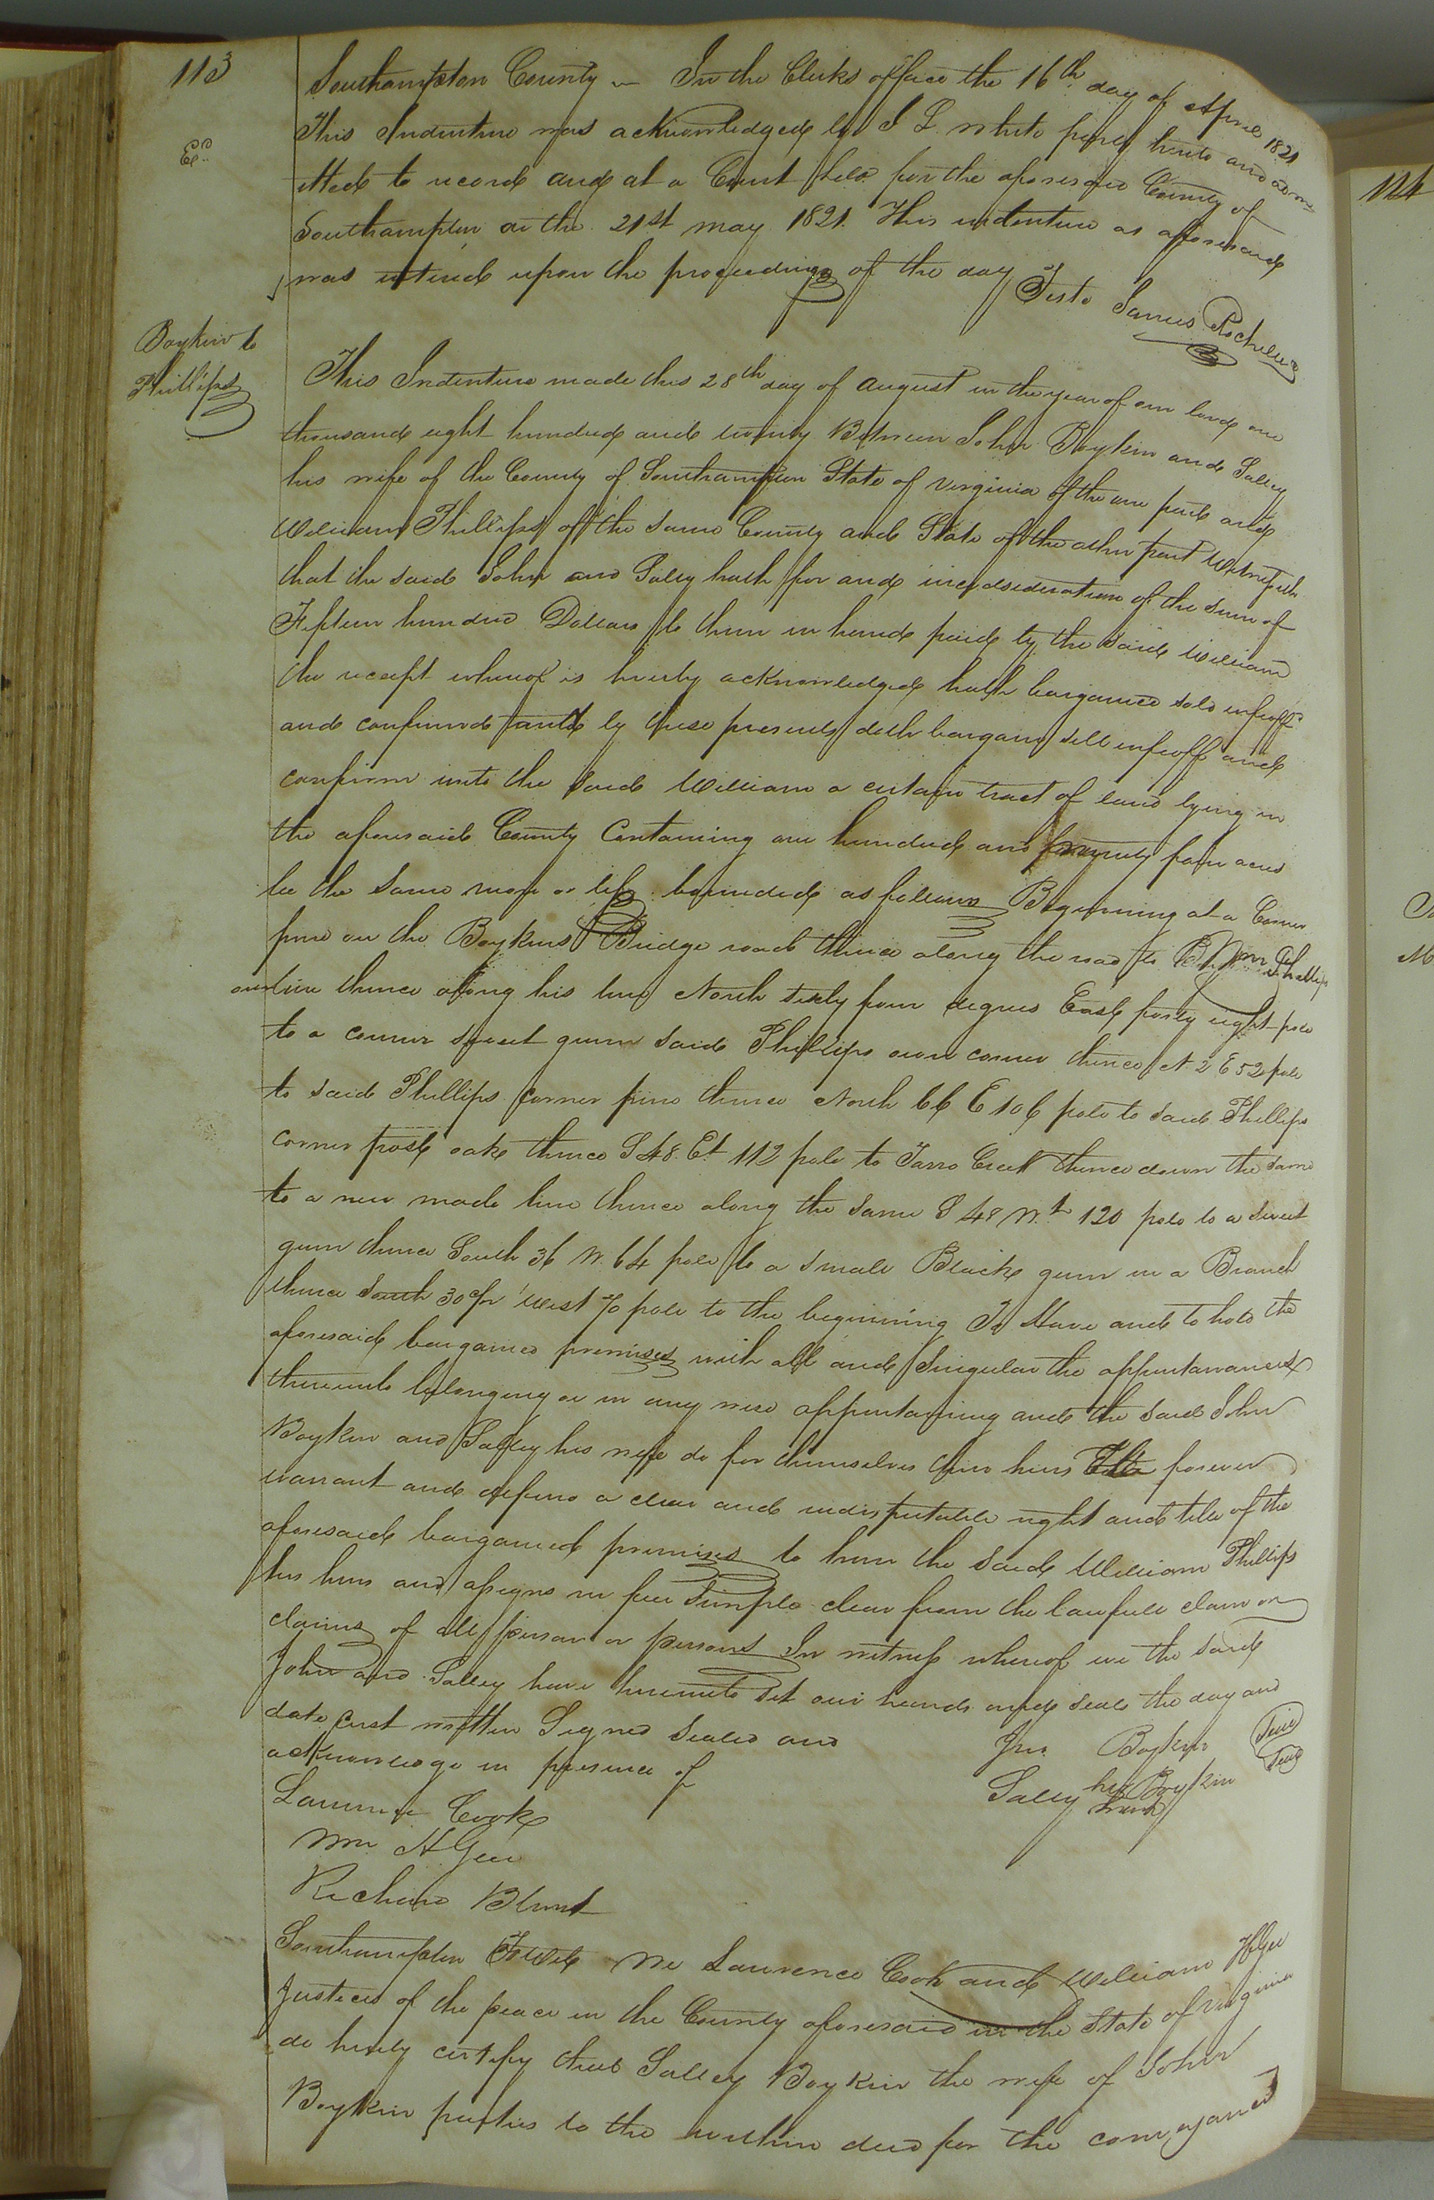 113
Southampton County – In the Clerks office the 16th day of April 1821
This Indenture was acknowledged by J L white party hereto and admi
Exd
tted to record and at a Court held for the aforesaid County of
Southampton on the 21st may 1821. This indenture as aforesaid
was entered upon the proceedings of the day Teste James Rochelle
Boykin to
Phillips
This Indenture made this 28th day of August in the year of our lord one
thousand eight hundred and twenty Between John Boykin and Salley
his wife of the County of Southampton State of virginia of the one part and
William Phillips of the same County and State of the other part Witnesseth
that the said John and Salley hath for and in consideration of the sum of
Fifteen hundred Dollars to them in hand paid by the said William
the receipt whereof is hereby acknowledged hath bargained sold enfeoff'd
and confirmed and by these presents doth bargain sell enfeoff and
confirm unto the said William a certain tract of land lying in
the aforesaid County Containing one hundred and four acres
be the same more or less bounded as follows Beginning at a Corner
pine on the Boykins Bridge road thence along the road to Wm Phillips
own line thence along his line North sixty four degrees East forty eight pole
to a corner sweet gum said Phillips own corner thence N 2 E 52 pole
to said Phillips corner pine thence North 66 E 106 pole to said Phillips
corner post oak thence S 48 Et 112 pole to Tarro Creek thence down the same
to a new made line thence along the same S 48 Wt 120 pole to a sweet
gum thence South 36 W. 64 pole to a small Black gum in a Branch
thence South 30 West 70 pole to the beginning To Have and to hold the
aforesaid bargained premises with all and Singular the appurtanances
thereunto belonging or in any wise appertaining and the said John
Boykin and Salley his wife do for themselves their heirs forever
warrant and defend a clear and indisputable right and title of the
aforesaid bargained premises to him the said William Phillips
his heirs and assigns in fee Simple clear from the lawfull claim or
claims of all person or persons In witness whereof we the said
John and Salley have hereunto set our hands and seals the day and
date first written Signed sealed and
acknowledge in presence of
Jno. Boykin Seal
Sally her Boykin Seal
Lawrence Cook
Wm H Gee
Richard Blunt
Southampton To Wit We Lawrence Cook and William H Gee
Justices of the peace in the County aforesaid in the State of Virginia
do hereby certify that Salley Boykin the wife of John
Boykin parties to the within deed for the conveyance
114